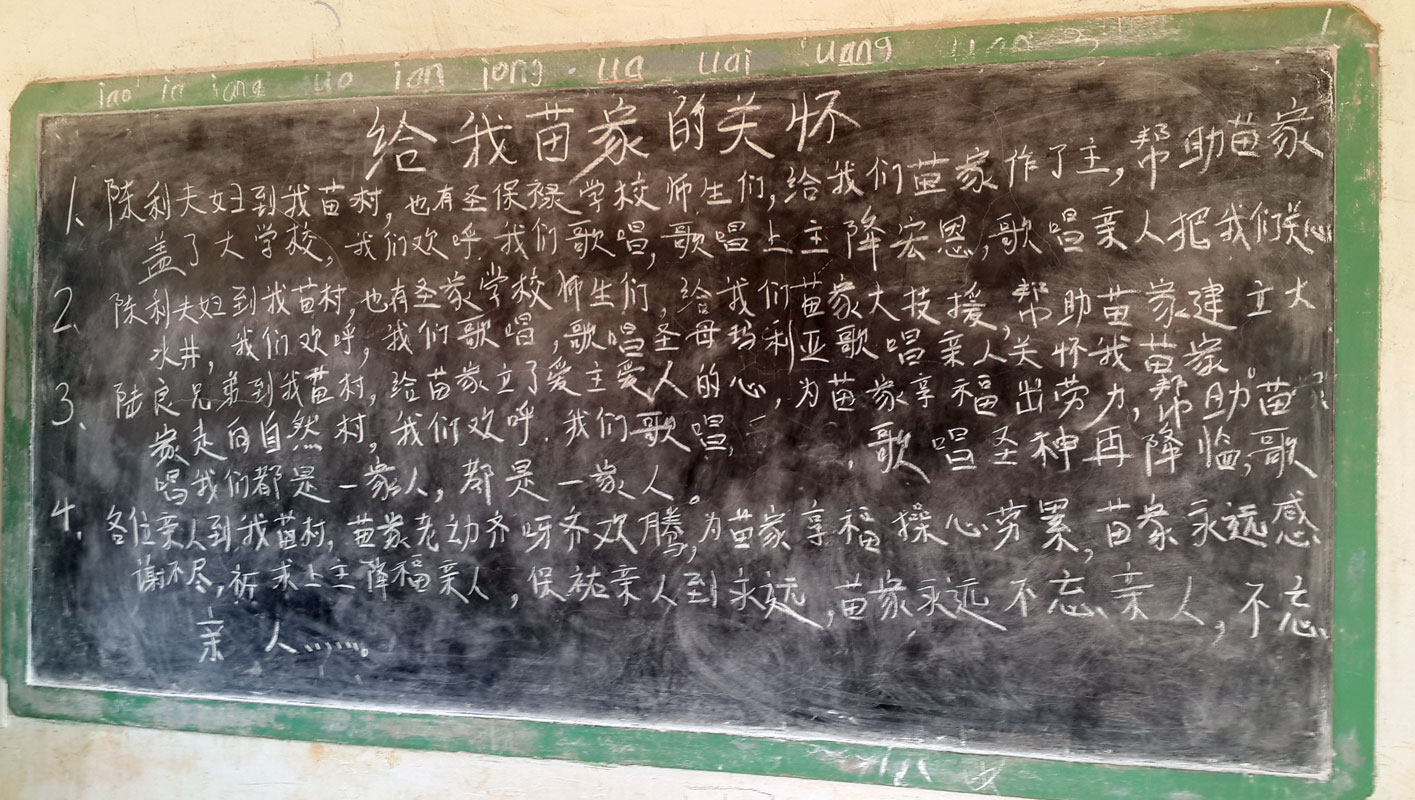 iao in iang uo ian iong ua uai uang
给我苗家的关怀
1、陈利夫妇到我苗村,也有圣保禄学校师生们,给我们苗家作了主,帮助苗家
盖了大学校,我们欢呼.我们歌唱,歌唱上主降宏恩,歌唱亲人把我们关心
2、陈利夫妇到我苗村,也有圣家学校师生们,给我们苗家大技援,帮助苗家建立大
水井,我们欢呼,我们歌唱,歌唱圣母玛利亚歌唱亲人关怀我苗家
3、陆良兄弟到我苗村,给苗家立了爱主爱人的心,为苗家享福出劳力,帮助苗
家走向自然村,我们欢呼.我们歌唱,歌唱圣神再降临,歌
唱我们都是一家人,都是一家人。
4.各位亲人到我苗村,苗家老幼齐呀齐欢腾,为苗家享福操心劳累,苗家永远感
谢不尽,祈求上主降福亲人,保祐亲人到永远,苗家永远不忘亲人,不忘
亲人……。